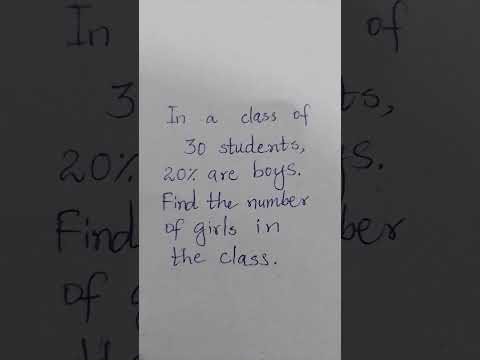 In a class of
30 students,
20% are boys.
Find the number
of girls in
the class.